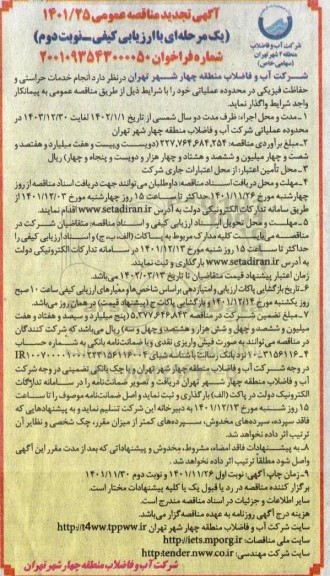 آگهی تجدید مناقصه عمومی ۱۴۰۱/۲۵
(یک مرحله‌ای با ارزیابی کیفی ـ نوبت دوم)
شماره فراخوان ۲۰۰۱۰۹۳۵۴۳۰۰۰۰۵۰
شرکت آب و فاضلاب
منطقه ۴ شهر تهران
(سهامی خاص)
شرکت آب و فاضلاب منطقه چهار شهر تهران در نظر دارد انجام خدمات حراستی و
حفاظت فیزیکی در محدوده عملیاتی خود را با شرایط ذیل از طریق مناقصه عمومی به پیمانکار
واجد شرایط واگذار نماید.
۱ـ مدت و محل اجراء: ظرف مدت دو سال شمسی از تاریخ ۱۴۰۲/۱/۱ لغایت ۱۴۰۳/۱۲/۳۰ در
محدوده عملیاتی شرکت آب و فاضلاب منطقه چهار شهر تهران
۲ـ مبلغ برآوردی مناقصه: ۲۲۷,۷۶۴,۶۸۴,۲۵۴ (دویست و بیست و هفت میلیارد و هفتصد و
شصت و چهار میلیون و ششصد و هشتاد و چهار هزار و دویست و پنجاه و چهار) ریال
۳ـ محل تأمین اعتبار: از محل اعتبارات جاری شرکت
۴ـ مهلت و محل دریافت اسناد مناقصه: داوطلبان می‌توانند جهت دریافت اسناد مناقصه از روز
چهارشنبه مورخ ۱۴۰۱/۱۱/۲۶ حداکثر تا ساعت ۱۵ روز چهارشنبه مورخ ۱۴۰۱/۱۲/۰۳ از
طریق سامانه تدارکات الکترونیکی دولت به آدرس www.setadiran.ir اقدام نمایند.
۵ـ مهلت و محل تحویل اسناد ارزیابی کیفی و اسناد مناقصه: متقاضیان شرکت در
مناقصه می‌بایست کلیه مدارک مربوط به پاکات (الف، ب، ج) و اسناد ارزیابی کیفی را
حداکثر تا ساعت ۱۵ روز شنبه مورخ ۱۴۰۱/۱۲/۱۳ در سامانه تدارکات الکترونیکی دولت
به آدرس www.setadiran.ir بارگذاری و ثبت نمایند.
زمان اعتبار پیشنهاد قیمت متقاضیان تا تاریخ ۱۴۰۲/۰۳/۱۳ می‌باشد.
۶ـ تاریخ بازگشایی پاکات ارزیابی و امتیازدهی براساس شاخص‌ها و معیارهای ارزیابی کیفی ساعت ۱۰ صبح
روز یکشنبه مورخ ۱۴۰۱/۱۲/۱۴ و بازگشایی پاکات ج (پیشنهاد قیمت) در همان روز می‌باشد.
۷ـ مبلغ تضمین شرکت در مناقصه ۵,۳۷۷,۶۴۶,۸۴۳ (پنج میلیارد و سیصد و هفتاد و هفت
میلیون و ششصد و چهل و شش هزار و هشتصد و چهل و سه) ریال می‌باشد که شرکت کنندگان
در مناقصه می‌توانند به صورت فیش واریزی نقدی و یا ضمانت‌نامه بانکی به شماره حساب
نزد بانک رسانت با شناسه شبای
در وجه شرکت آب و فاضلاب منطقه چهار شهر تهران و یا چک بانکی تضمینی در وجه شرکت
آب و فاضلاب منطقه چهار شهر تهران دریافت و تصویر ضمانت‌نامه را در سامانه تدارکات
الکترونیک دولت در پاکت (الف) بارگذاری و ثبت نماید و اصل ضمانت‌نامه موصوف را تا ساعت
۱۵ روز شنبه مورخ ۱۴۰۱/۱۲/۱۳ به دبیرخانه این شرکت تسلیم نماید و به پیشنهادهایی که
فاقد سپرده، سپرده‌های مخدوش، سپرده‌های کمتر از میزان مقرر، چک شخصی و نظایر آن
ترتیب اثر داده نخواهد شد.
۸ـ به پیشنهادات فاقد امضاء، مشروط، مخدوش و پیشنهاداتی که بعد از مدت مقرر این آگهی
واصل شود مطلقاً ترتیب اثر داده نخواهد شد.
۹ـ زمان چاپ آگهی: نوبت اول ۱۴۰۱/۱۱/۲۶ و نوبت دوم ۱۴۰۱/۱۱/۳۰
برگزار کننده مناقصه در رد یا قبول یک یا کلیه پیشنهادات مختار است.
سایر اطلاعات و جزئیات در اسناد مناقصه مندرج است.
هزینه درج آگهی روزنامه به عهده مناقصه‌گزار می‌باشد.
سایت شرکت آب و فاضلاب منطقه چهار شهر تهران http://t4ww.tppww.ir
سایت ملی مناقصات: http://iets.mporg.ir
سایت شرکت مهندسی: http:tender.nww.co.ir
شرکت آب و فاضلاب منطقه چهار شهر تهران